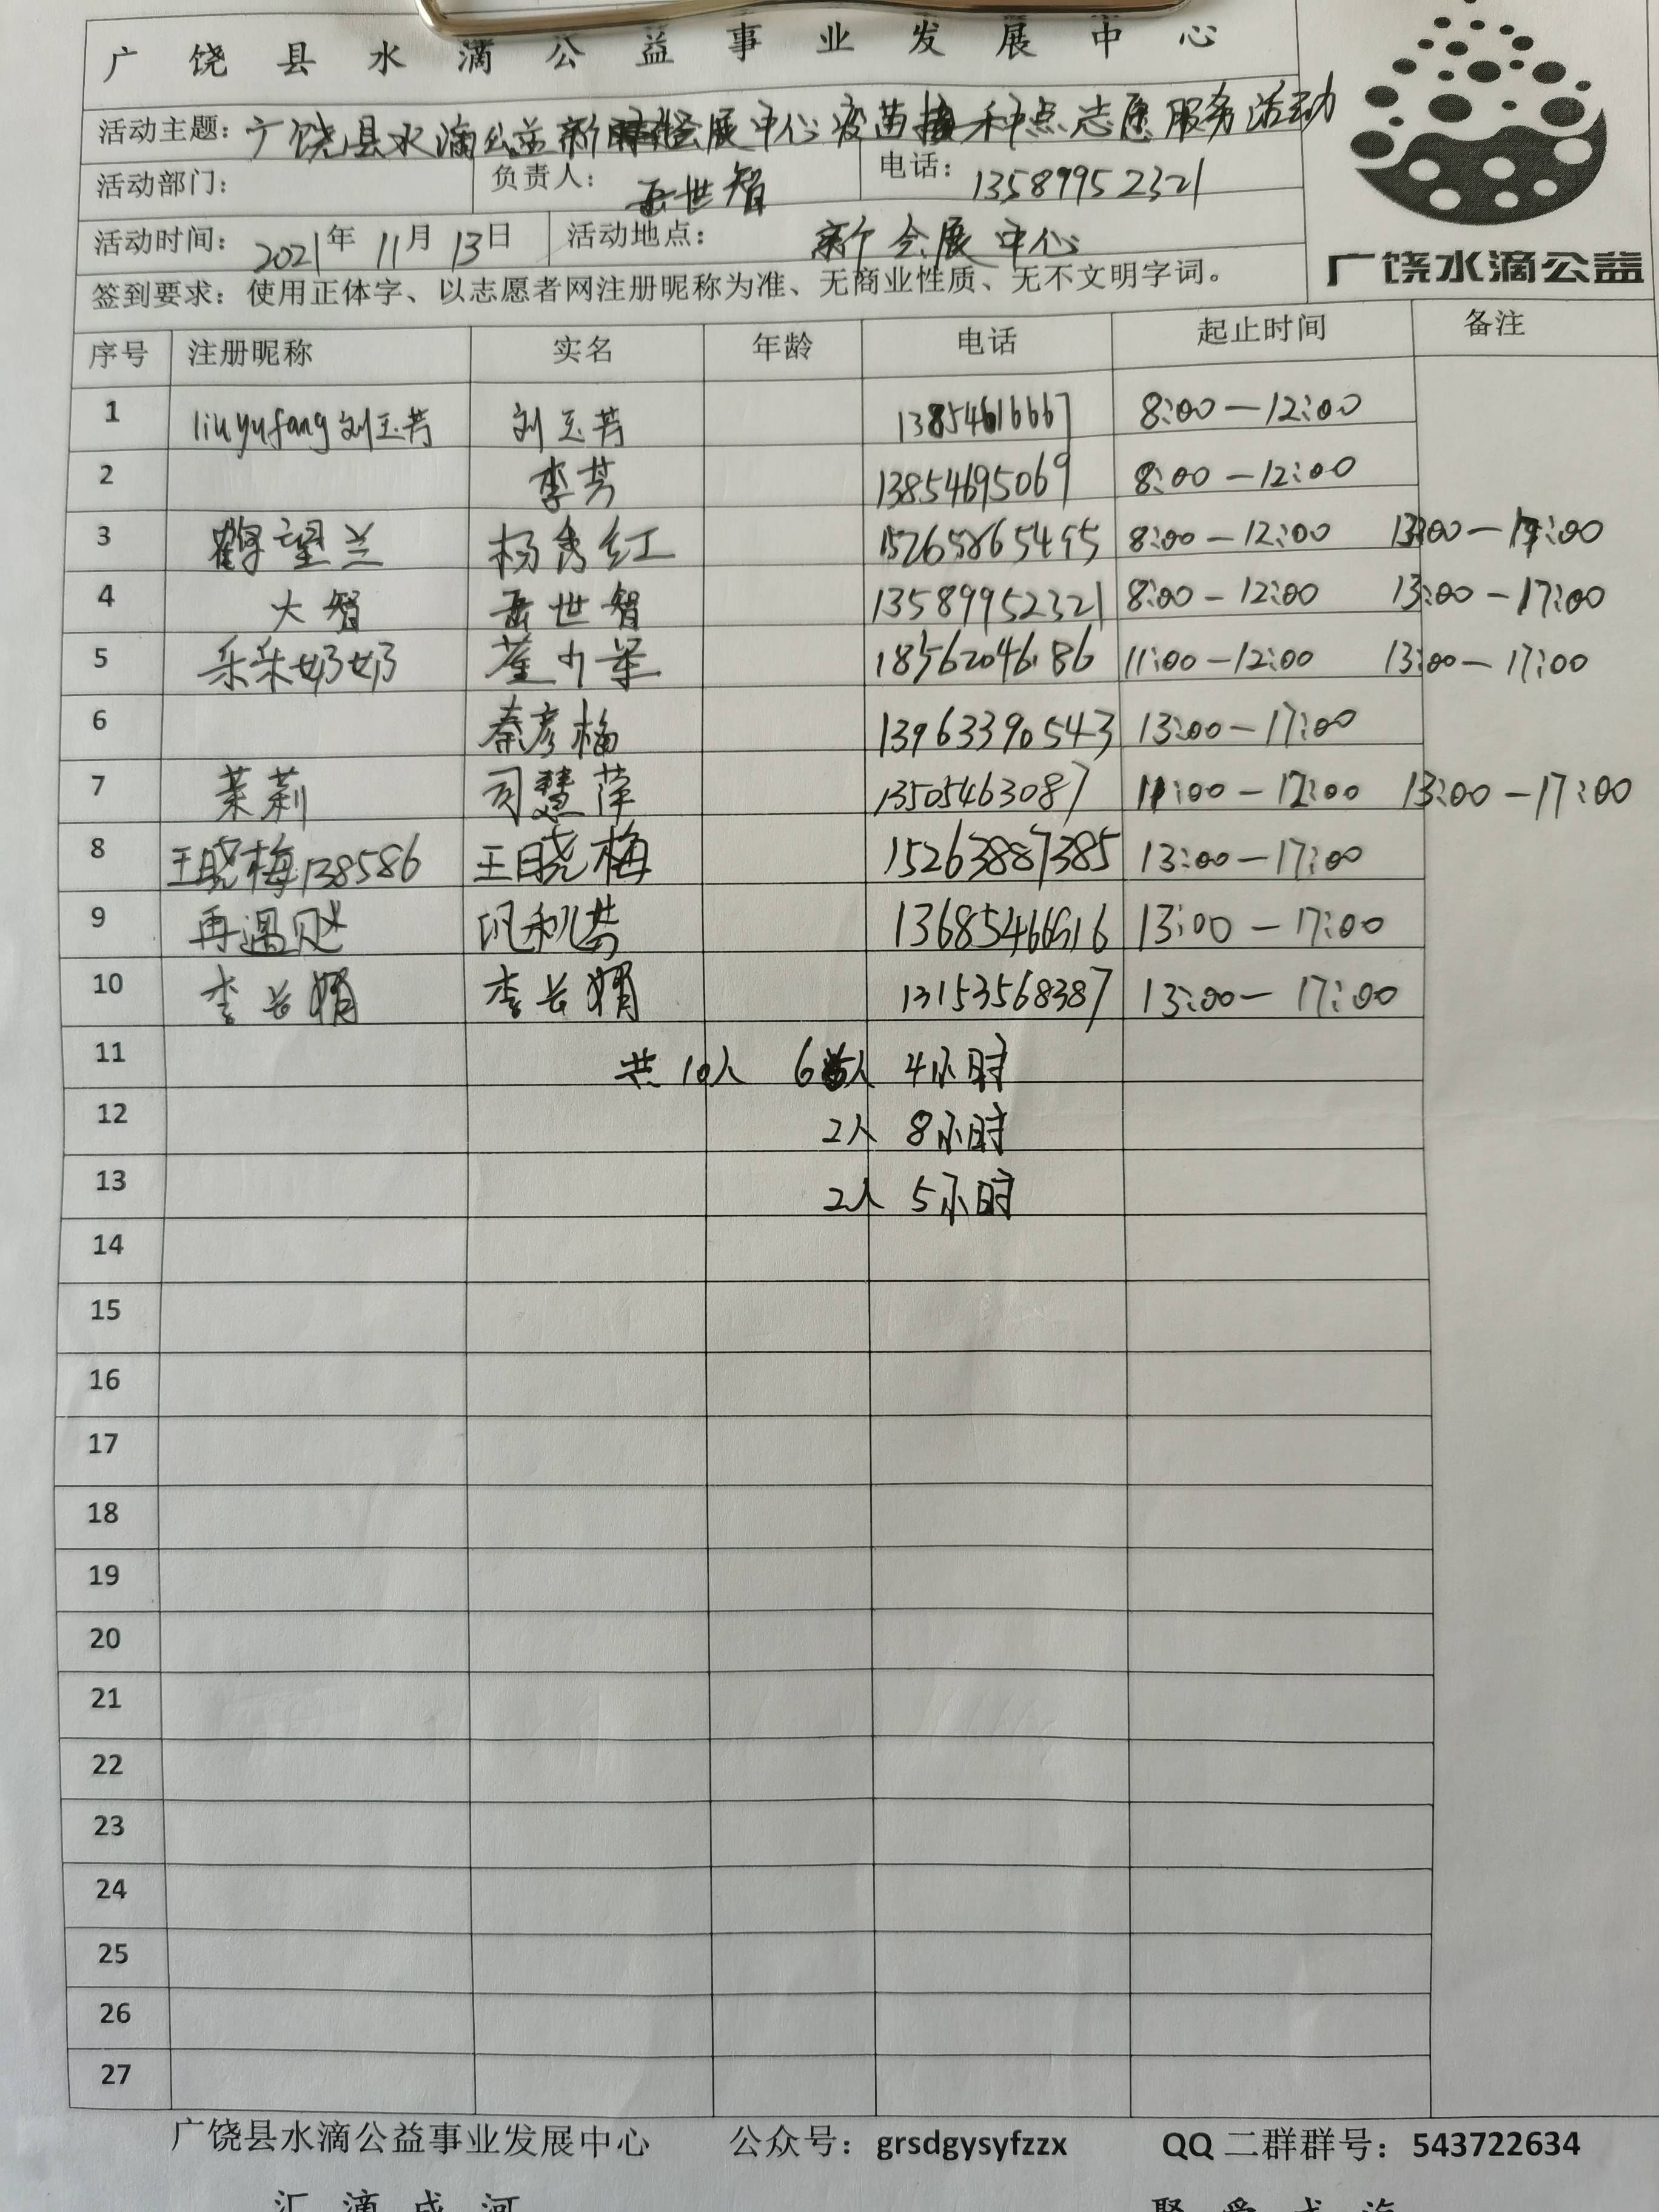 广饶县水滴公益事业发展中心
活动主题：广饶县水滴公益新会展中心疫苗接种点志愿服务活动
活动部门： 负责人：岳世智 电话：13589952321
活动时间：2021年11月13日 活动地点：新会展中心
广饶水滴公益
签到要求：使用正体字、以志愿者网注册昵称为准、无商业性质、无不文明字词。
序号 注册昵称 实名 年龄 电话 起止时间 备注
1 liuyufang刘玉芳 刘玉芳 13854616667 8:00—12:00
2 李芳 13854695069 8:00—12:00
3 鹤望兰 杨秀红 15265865495 8:00—12:00 13:00—17:00
4 大智 岳世智 13589952321 8:00—12:00 13:00—17:00
5 采采奶奶 18562046186 11:00—12:00 13:00—17:00
6 秦彦梅 13963390543 13:00—17:00
7 茉莉 司慧萍 13505463087 11:00—12:00 13:00—17:00
8 王晓梅138586 王晓梅 15263887385 13:00—17:00
9 再遇见 13:00—17:00
10 李长娟 李长娟 13153568387 13:00—17:00
11 共10人 6人 4小时
12 2人 8小时
13 2人 5小时
14
15
16
17
18
19
20
21
22
23
24
25
26
27
广饶县水滴公益事业发展中心 公众号：grsdgysyfzzx QQ二群群号：543722634
汇滴成河 聚爱成海